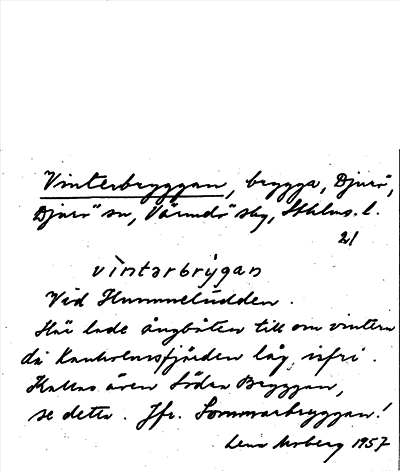 Vinterbryggan, brygga, Djurö,
Djurö sn, Värmdö sbg, Sthlms. l.
21
vìntarbrỳgan
Vid Hummeludden.
Här lade ångbåten till om vintern
då Kanholmsfjärden låg isfri.
Kallas även Södra Bryggan,
se detta. Jfr. Sommarbryggan!
1957